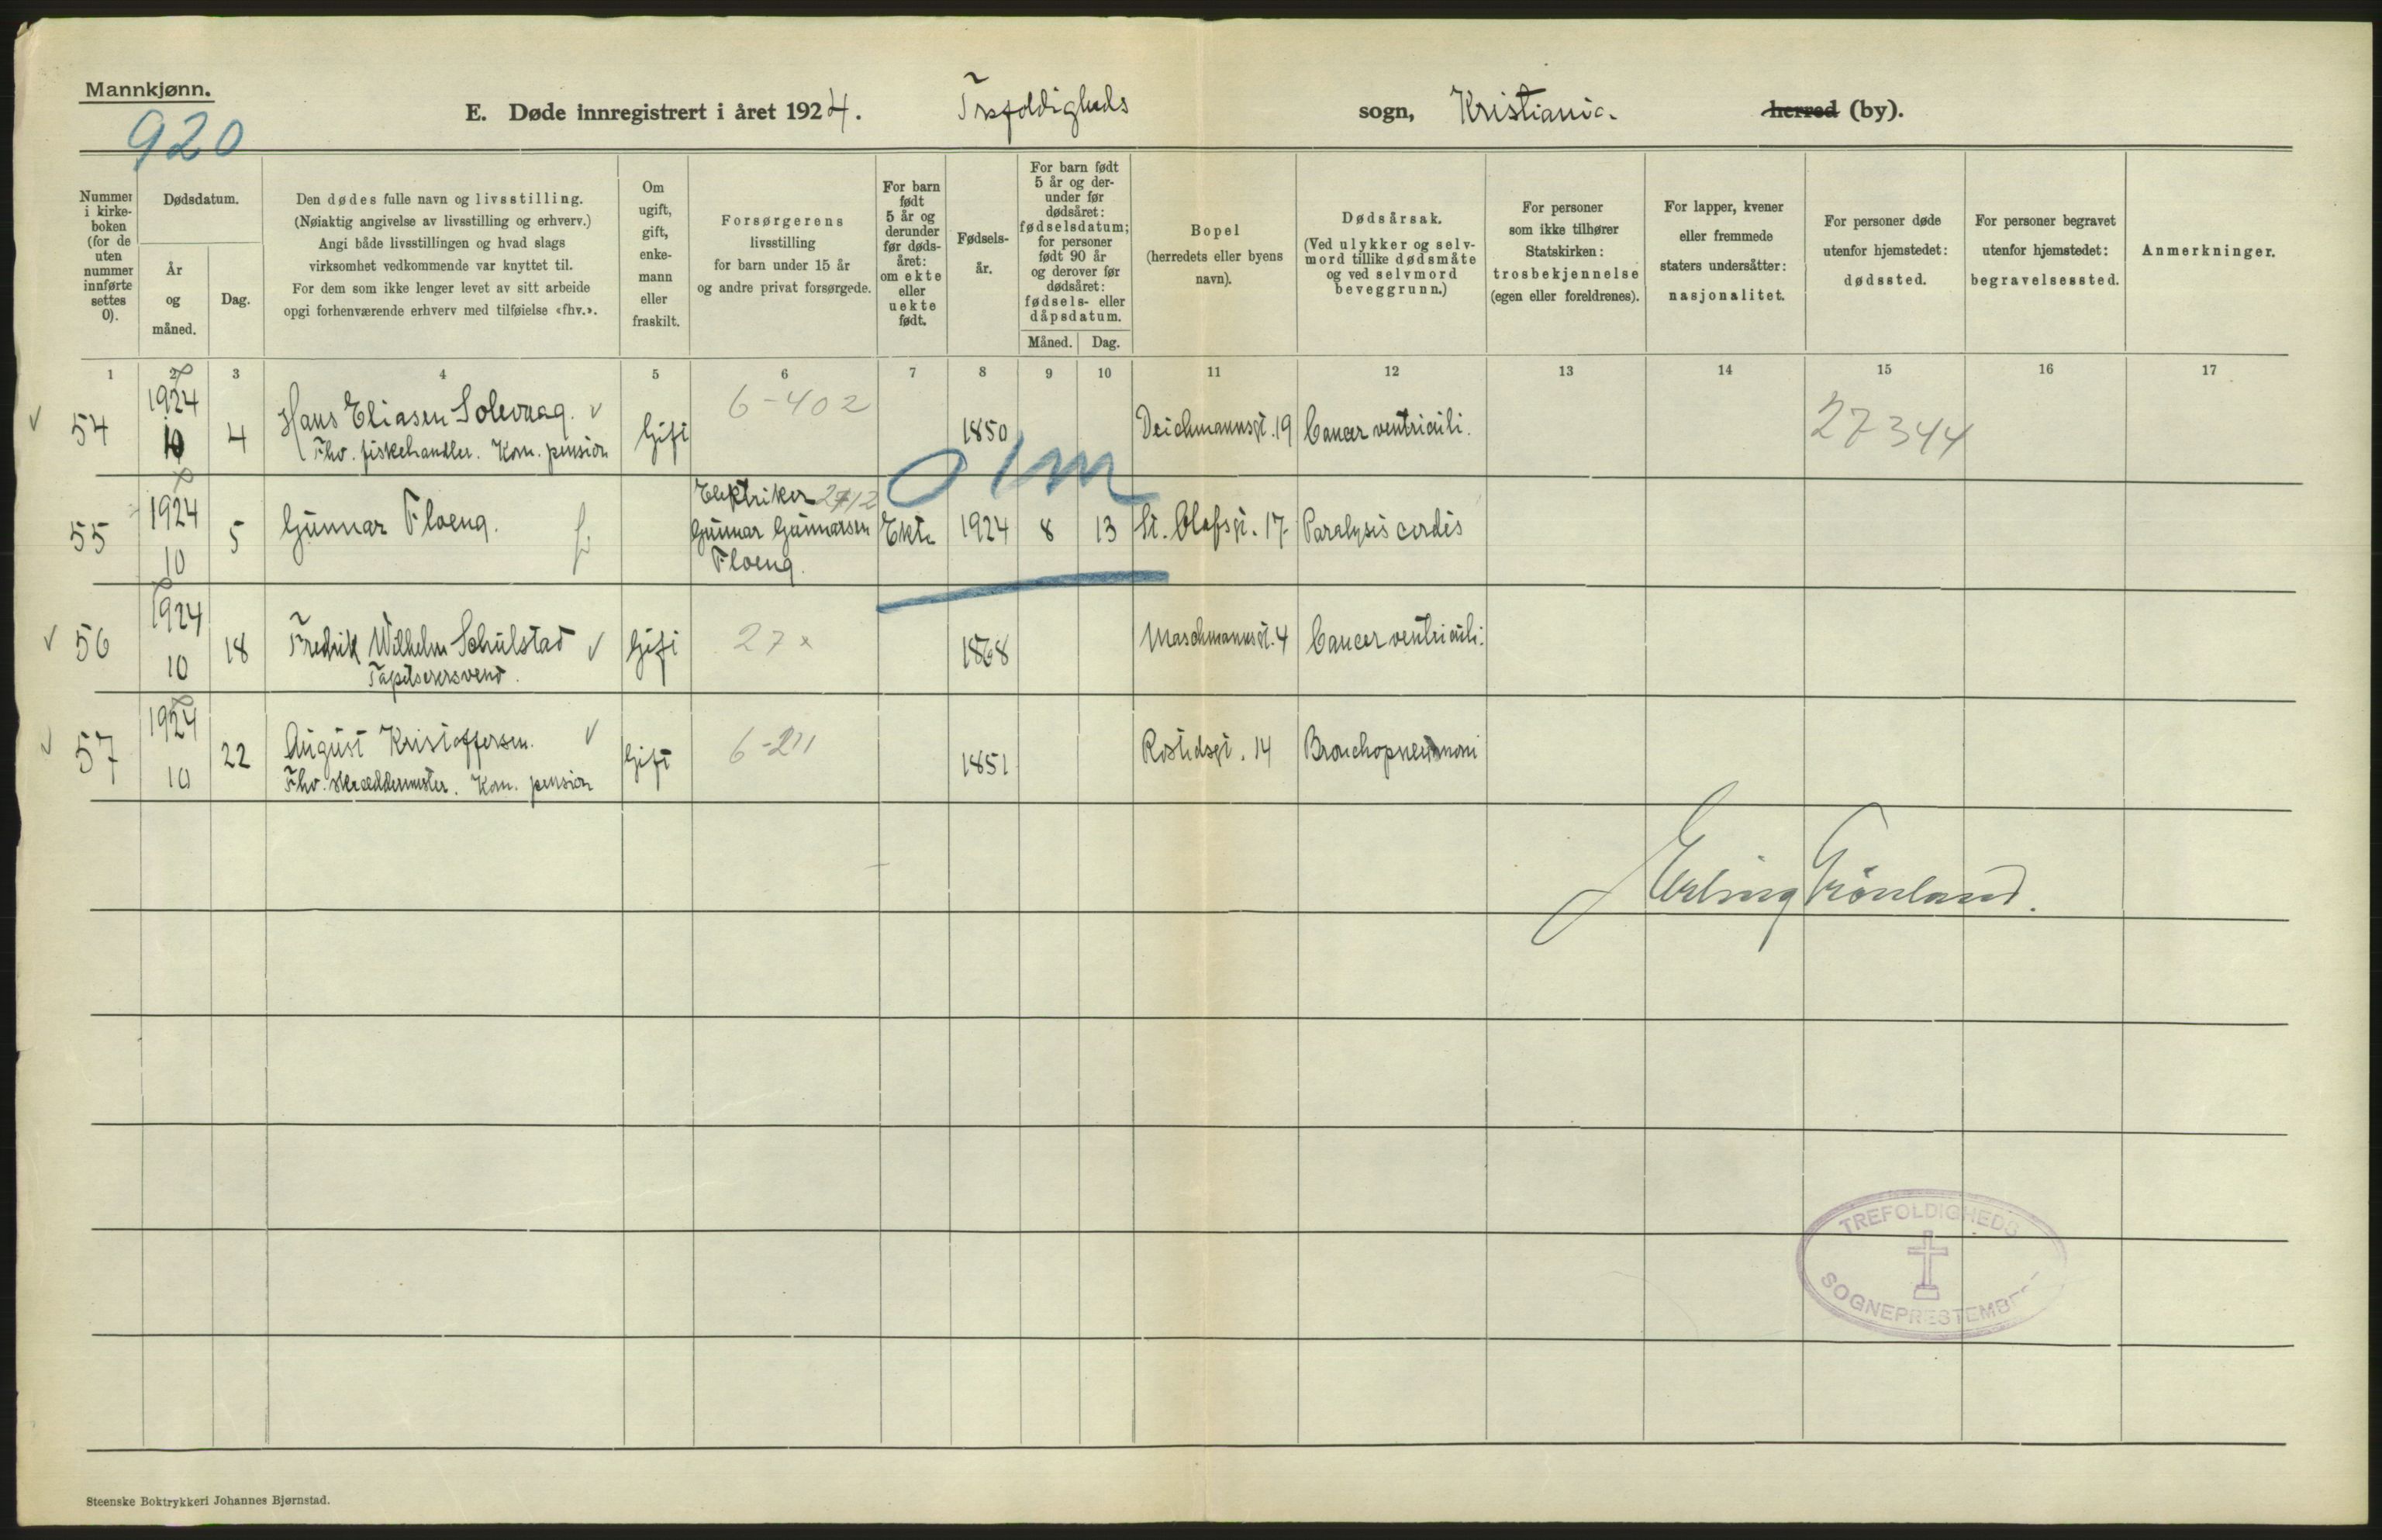 Mannkjønn.
920
E. Døde innregistrert i året 1924. Trefoldigheds sogn, Kristiania. herred (by).
Nummer i kirke- boken (for de uten nummer innførte settes 0).
Dødsdatum.
År og måned.
Dag.
Den dødes fulle navn og livsstilling.
(Nøiaktig angivelse av livsstilling og erhverv.)
Angi både livsstillingen og hvad slags
virksomhet vedkommende var knyttet til.
For dem som ikke lenger levet av sitt arbeide
opgi forhenværende erhverv med tilføielse «fhv.».
Om ugift, gift, enke- mann eller fraskilt.
Forsørgerens
livsstilling
for barn under 15 år
og andre privat forsørgede.
For barn født 5 år og derunder før døds- året: om ekte eller uekte født.
Fødsels- år.
For barn født 5 år og der- under før dødsåret: fødselsdatum; for personer født 90 år og derover før dødsåret: fødsels- eller dåpsdatum.
Måned. Dag.
Bopel
(herredets eller byens navn).
Dødsårsak.
(Ved ulykker og selv- mord tillike dødsmåte og ved selvmord beveggrunn.)
For personer
som ikke tilhører
Statskirken:
trosbekjennelse
(egen eller foreldrenes).
For lapper, kvener
eller fremmede
staters undersåtter:
nasjonalitet.
For personer døde
utenfor hjemstedet:
dødssted.
For personer begravet
utenfor hjemstedet:
begravelsessted.
Anmerkninger.
1 2 3 4 5 6 7 8 9 10 11 12 13 14 15 16 17
54 1924 10 4 Hans Eliasen Solevaag. Gift 6-402 1850 Deichmannsgt. 19 Cancer ventriculi. 27344
Fhv. fiskehandler. Kom. pension
55 1924 10 5 Gunnar Floeng. Elektriker 2712
Gunnar Gunnarsen
Floeng. Ekte 1924 8 13 St. Olafsgt. 17 Paralysis cordis
56 1924 10 18 Fredrik Wilhelm Schulstad Gift 27 x 1868 Maschmannsgt. 4 Cancer ventriculi.
Tapetserersvend.
57 1924 10 22 August Kristoffersen. Gift 6-211 1851 Rostedsgt. 14 Bronchopneumoni
Fhv. skræddermester. Kom. pension
Erling Grönland.
TREFOLDIGHEDS
SOGNEPRESTEMBE
Steenske Boktrykkeri Johannes Bjørnstad.